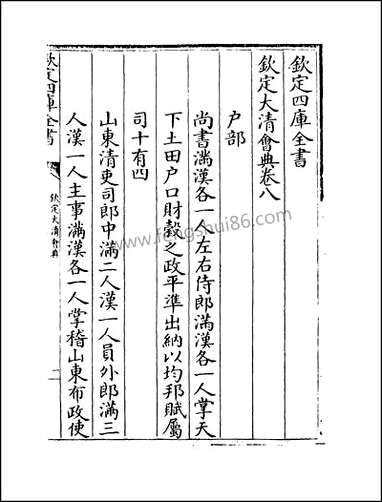 欽定四庫全書
欽定大清會典卷八
戶部
尚書滿漢各一人左右侍郎滿漢各一人掌天
下土田戶口財穀之政平準出納以均邦賦屬
司十有四
山東清吏司郎中滿二人漢一人員外郎滿三
人漢一人主事滿漢各一人掌稽山東布政使
欽定四庫全書
欽定大清會典
一
www.fengshui86.com